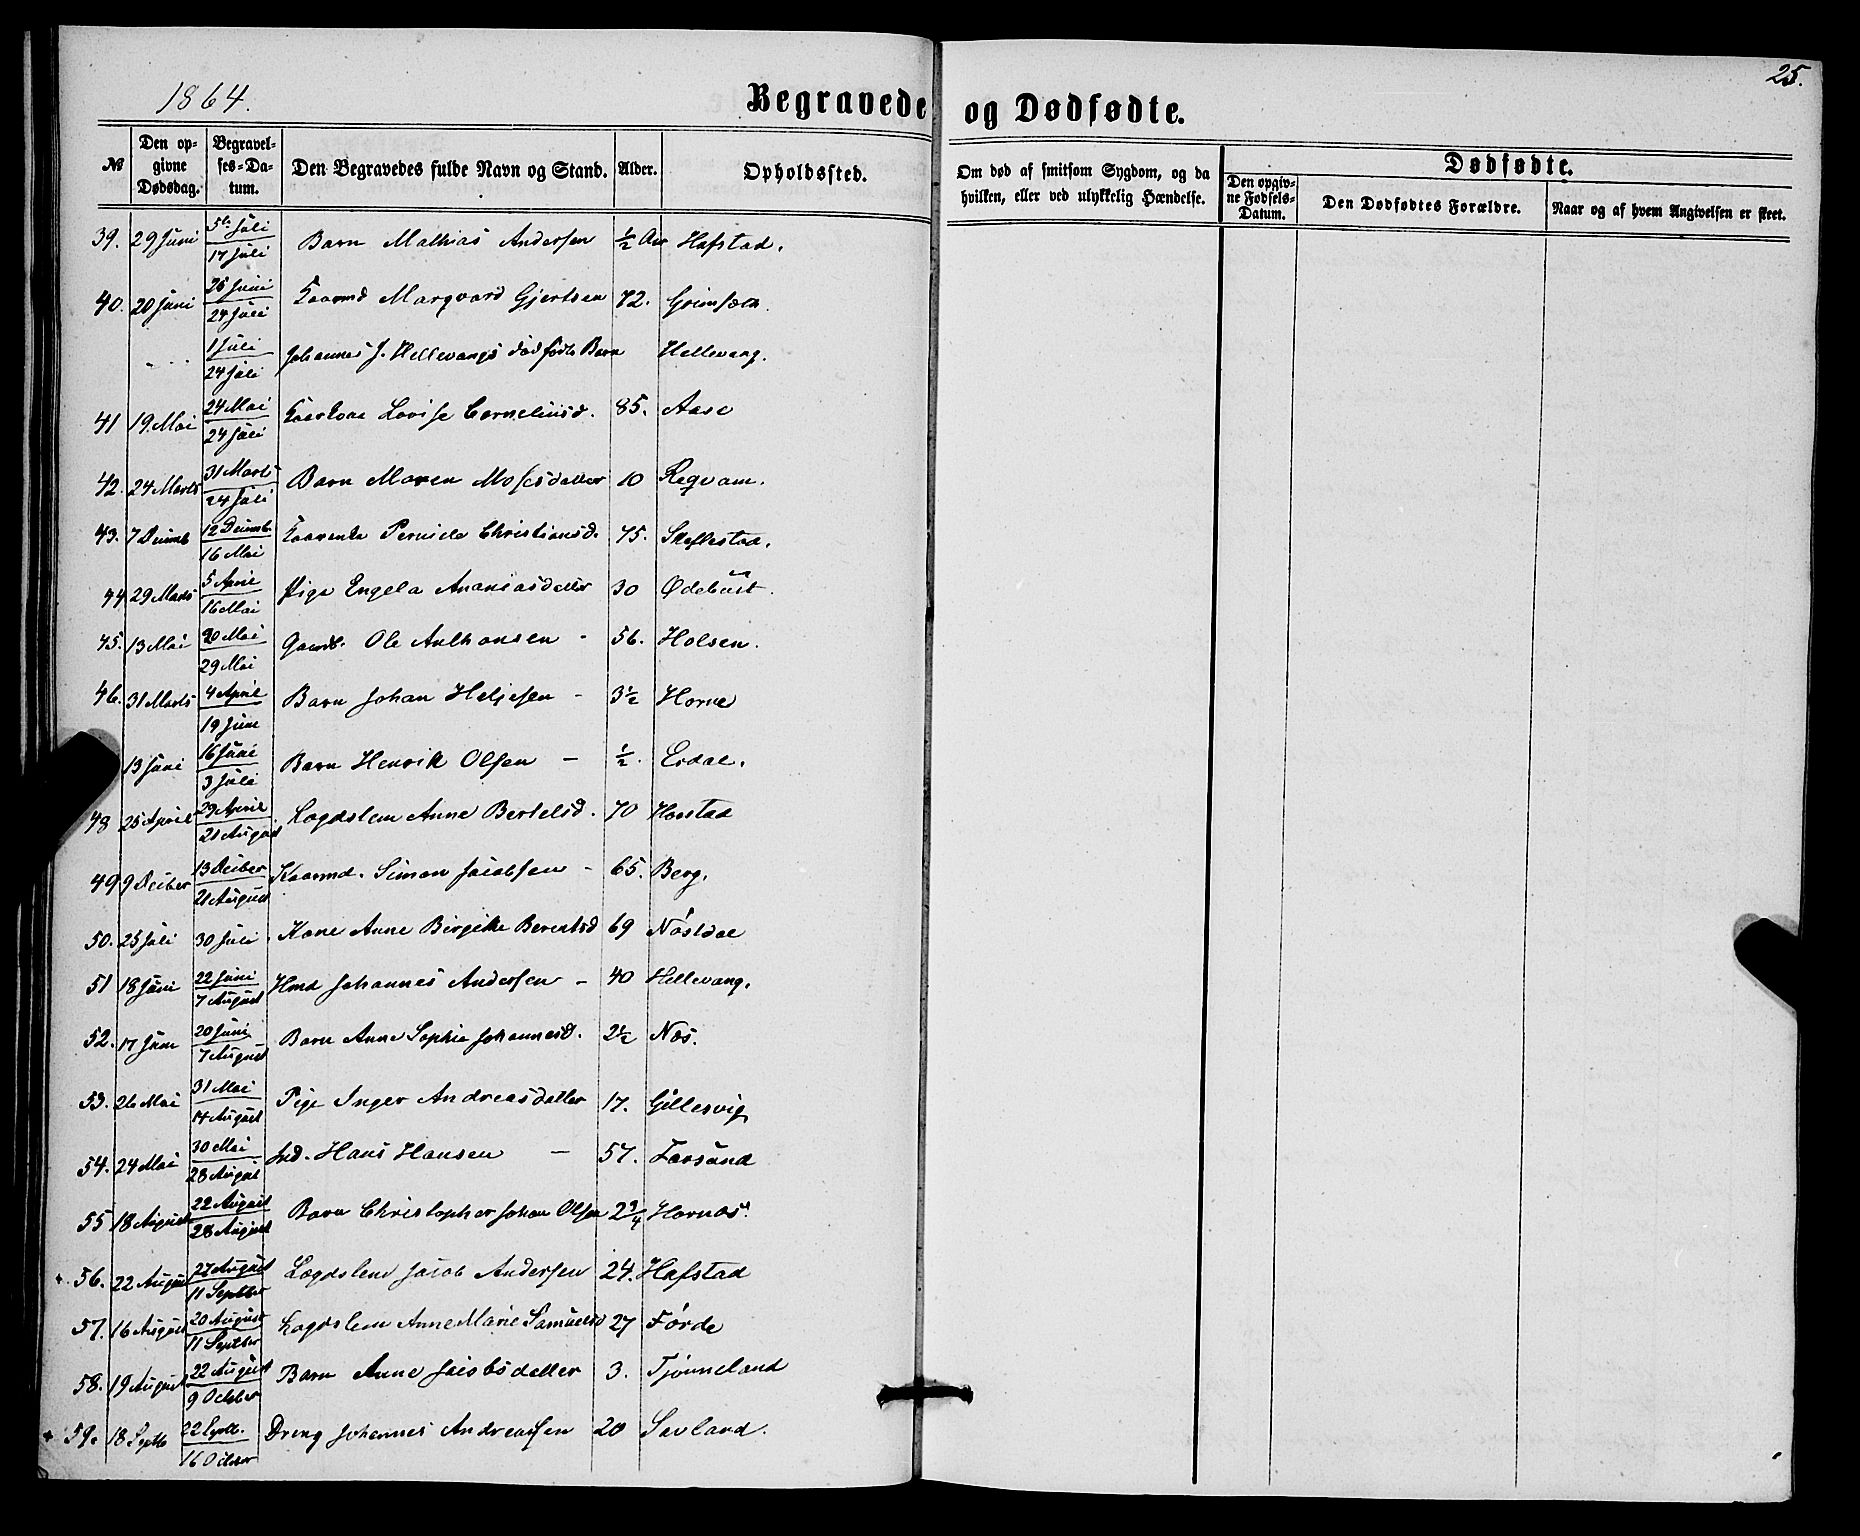 1864.
Begravede og Dødfødte.
25.
№ Den opgivne Dødsdag. Begravelses-Datum. Den Begravedes fulde Navn og Stand. Alder. Opholdssted. Om død af smitsom Sygdom, og da hvilken, eller ved ulykkelig Hændelse. Dødfødte. Den opgivne Fødsels-Datum. Den Dødfødtes Forældre. Naar og af hvem Angivelsen er skeet.
39. 29 Juni 5te Juli 17 Juli Barn Mathias Andersen ½ Aar Hafstad.
40. 20 Juni 25 Juni 24 Juli Kaarmd Marqvard Gjertsen 72. Grimsæth.
1 Juli 24 Juli Johannes J. Hellevangs dødfødte Barn Hellevang.
41 19. Mai 24 Mai 24 Juli Kaarkone Lovise Corneliusd. 85. Aase
42. 24 Marts 31 Marts 24 Juli Barn Maren Mosesdatter 10 Regvam.
43. 7 Decemb 12 Decemb. 16 Mai Kaarenke Pernille Christiansd. 75. Skeflestad.
44 29 Marts 5 April 16 Mai Pige Engela Ananiasdatter 30 Ødebust.
45. 13 Mai 20 Mai 29 Mai Gaardb. Ole Anthonsen - 56. Holsen.
46. 31 Marts 4 April 19 Juni Barn Johan Heljesen - 3½ Horne
13 Juni 16 Juni 3 Juli Barn Henrik Olsen - ½. Erdal.
48 25 April 29 April 21 August Lægdslem Anne Bertelsd. 70 Horstad
49 9 Decber 13 Decber 21 August Kaarmd. Simon Jacobsen - 65. Berg.
50. 25 Juli 30 Juli. Kone Anne Birgitte Berentsd 69 Nøstdal
51 18 Juni 22 Juni 7 August Hmd Johannes Andersen - 40 Hellevang.
52. 17 Juni 20 Juni 7 August Barn Anne Sophie Johannesd. 2½ Næs.
53. 26 Mai 31 Mai 14 August Pige Inger Andreasdatter 17. Gillesvig
54. 24 Mai 30 Mai 28 August Ind. Hans Hansen - 57. Farsund
55 18 August 22 August 28 August Barn Christopher Johan Olsen 2¾ Hornæs.
+ 56. 22 August 27 August 11 Septber Lægdslem Jacob Andersen 24. Hafstad
57. 16 August 20 August 11 Septber Lægdslem Anne Marie Samuelsd 27 Førde
58. 19 August 22 August 9 October Barn Anne Jacobsdatter 3. Tjønneland
+ 59. 18 Septb 22 Septb. 16 October Dreng Johannes Andreassen 20 Sevland.